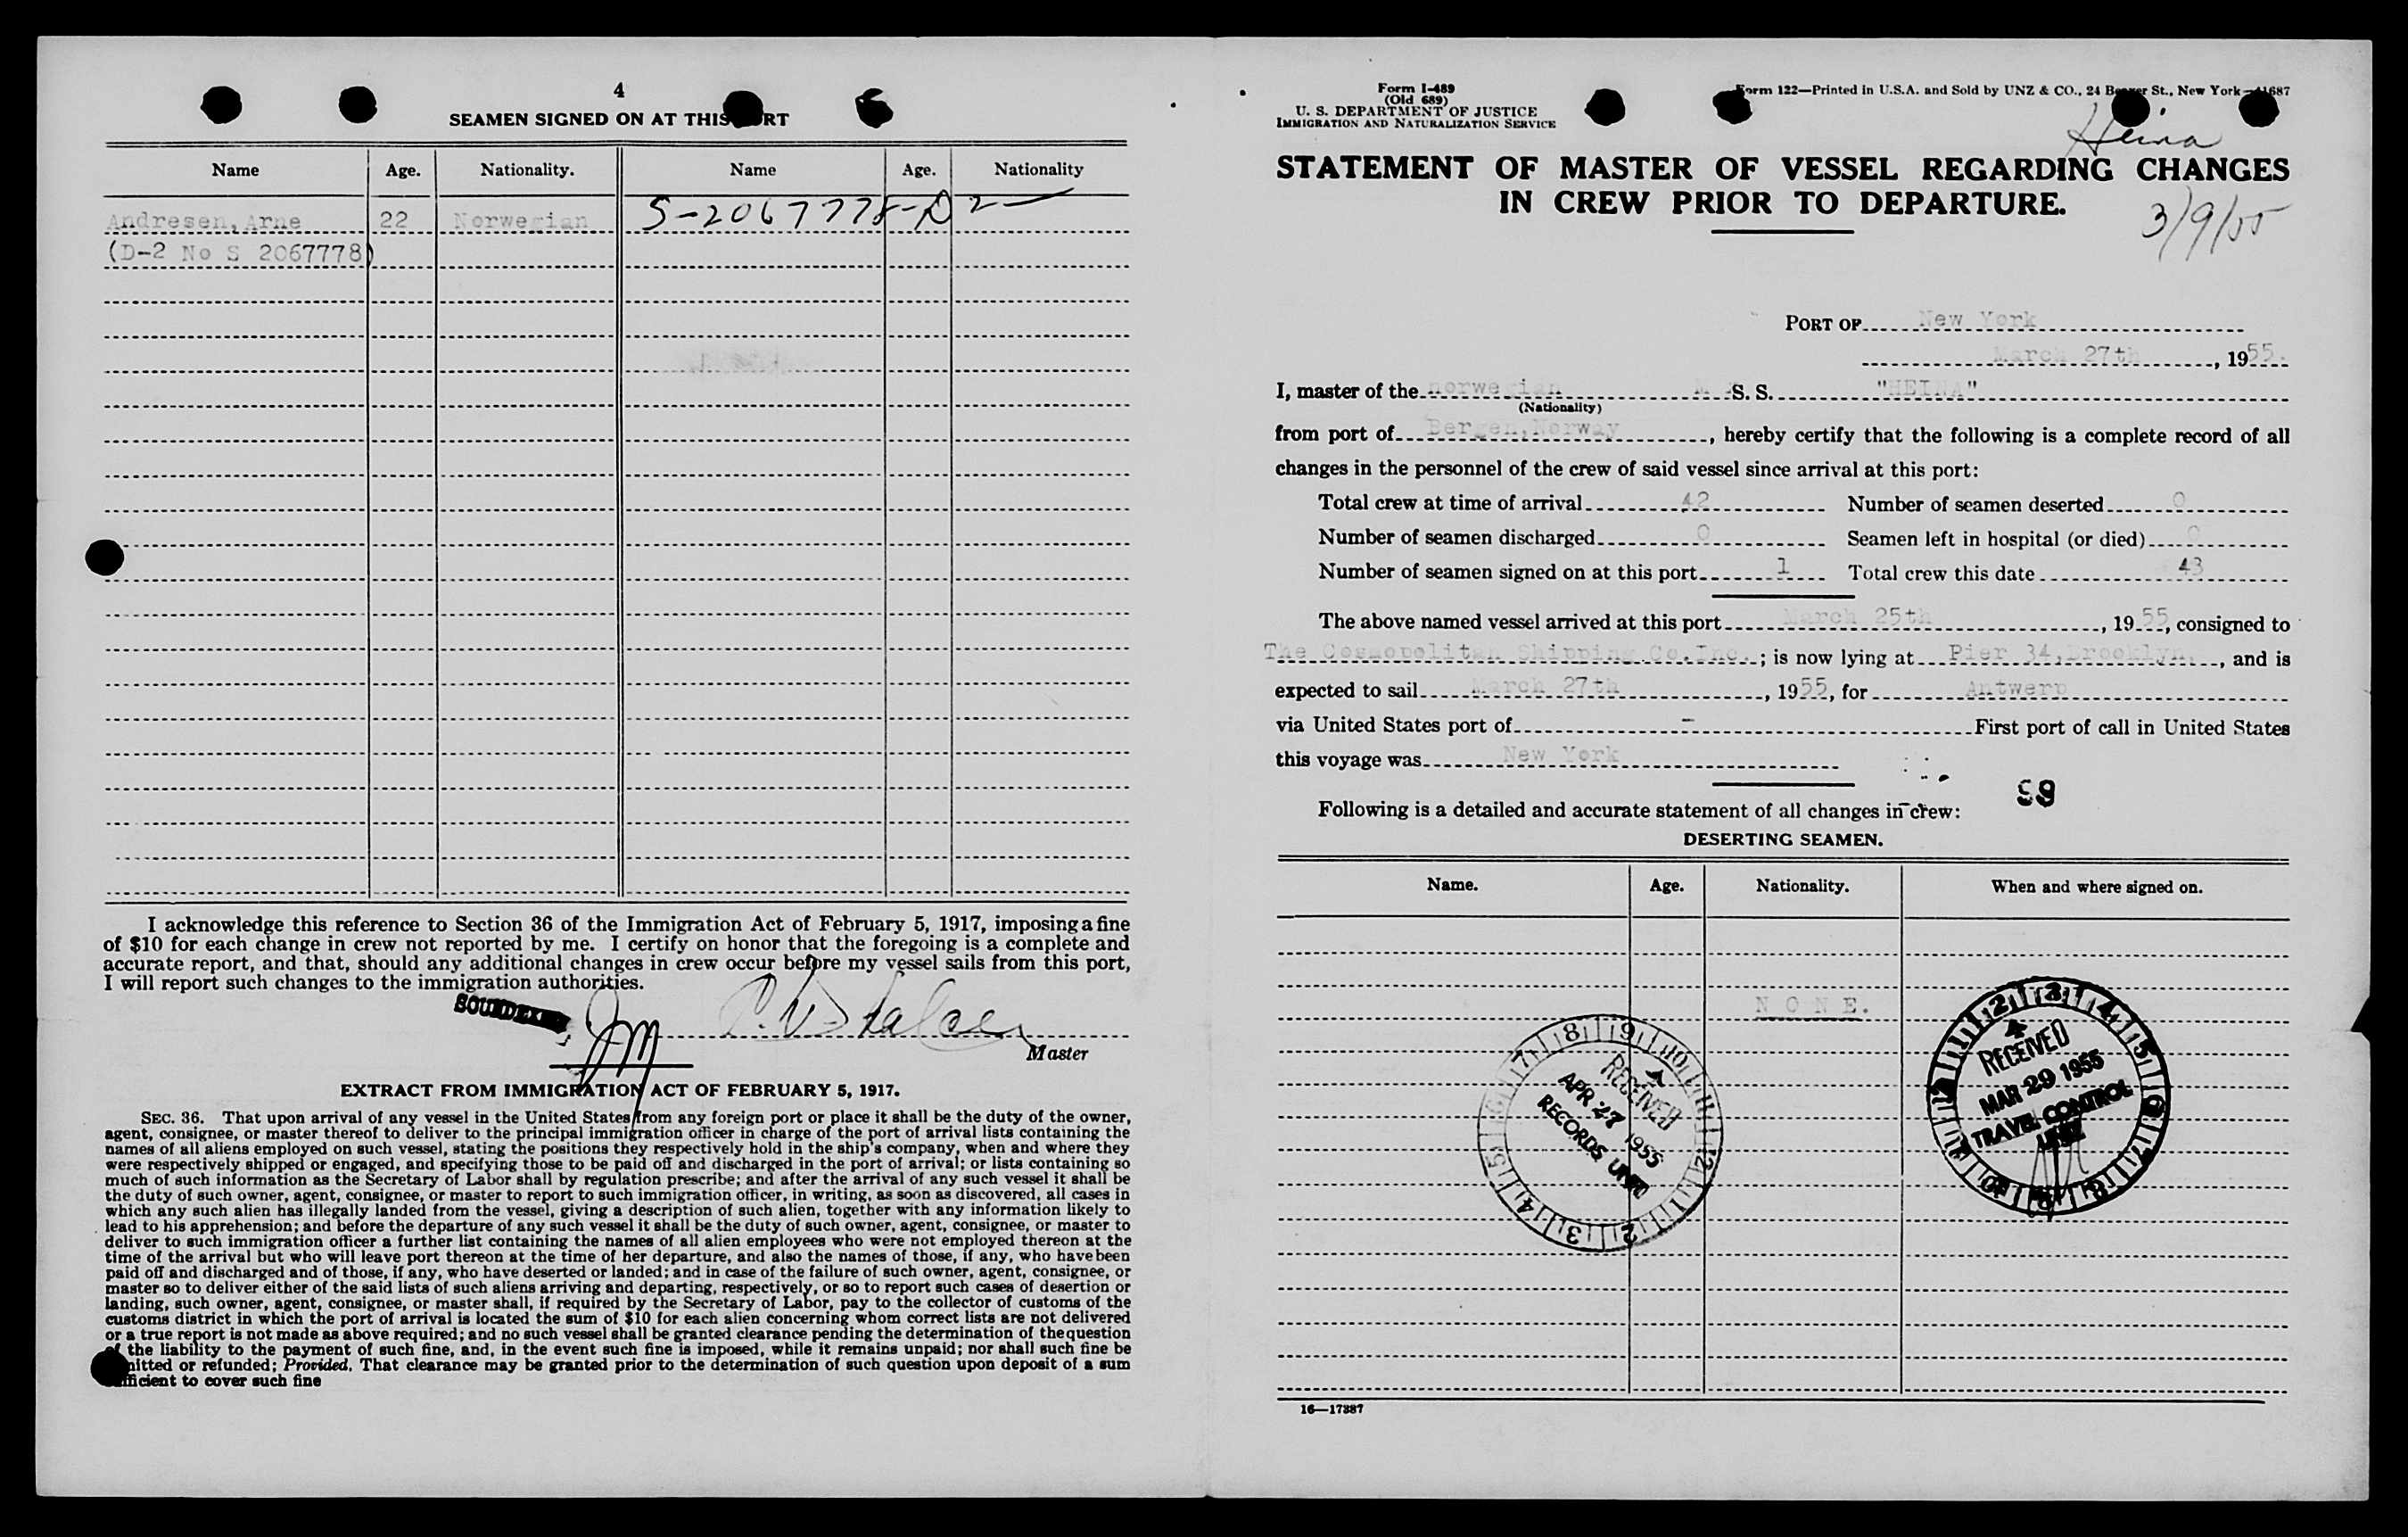 4
SEAMEN SIGNED ON AT THIS RT
Name Age. Nationality. Name Age. Nationality
Andresen, Arne 22 Norwegian S-2067778-D2
(D-2 No S 2067778)
I acknowledge this reference to Section 36 of the Immigration Act of February 5, 1917, imposing a fine
of $10 for each change in crew not reported by me. I certify on honor that the foregoing is a complete and
accurate report, and that, should any additional changes in crew occur before my vessel sails from this port,
I will report such changes to the immigration authorities.
Master
EXTRACT FROM IMMIGRATION ACT OF FEBRUARY 5, 1917.
SEC. 36. That upon arrival of any vessel in the United States from any foreign port or place it shall be the duty of the owner,
agent, consignee, or master thereof to deliver to the principal immigration officer in charge of the port of arrival lists containing the
names of all aliens employed on such vessel, stating the positions they respectively hold in the ship's company, when and where they
were respectively shipped or engaged, and specifying those to be paid off and discharged in the port of arrival; or lists containing so
much of such information as the Secretary of Labor shall by regulation prescribe; and after the arrival of any such vessel it shall be
the duty of such owner, agent, consignee, or master to report to such immigration officer, in writing, as soon as discovered, all cases in
which any such alien has illegally landed from the vessel, giving a description of such alien, together with any information likely to
lead to his apprehension; and before the departure of any such vessel it shall be the duty of such owner, agent, consignee, or master to
deliver to such immigration officer a further list containing the names of all alien employees who were not employed thereon at the
time of the arrival but who will leave port thereon at the time of her departure, and also the names of those, if any, who have been
paid off and discharged and of those, if any, who have deserted or landed; and in case of the failure of such owner, agent, consignee, or
master so to deliver either of the said lists of such aliens arriving and departing, respectively, or so to report such cases of desertion or
landing, such owner, agent, consignee, or master shall, if required by the Secretary of Labor, pay to the collector of customs of the
customs district in which the port of arrival is located the sum of $10 for each alien concerning whom correct lists are not delivered
or a true report is not made as above required; and no such vessel shall be granted clearance pending the determination of the question
of the liability to the payment of such fine, and, in the event such fine is imposed, while it remains unpaid; nor shall such fine be
mitted or refunded; Provided, That clearance may be granted prior to the determination of such question upon deposit of a sum
ficient to cover such fine
Form I-489
(Old 689)
U. S. DEPARTMENT OF JUSTICE
IMMIGRATION AND NATURALIZATION SERVICE
Form 122—Printed in U.S.A. and Sold by UNZ & CO., 24 Beaver St., New York
Heina
STATEMENT OF MASTER OF VESSEL REGARDING CHANGES
IN CREW PRIOR TO DEPARTURE.
3/9/55
PORT OF New York
March 27th, 1955.
I, master of the norwegian S. S. "HEINA"
(Nationality)
from port of Bergen, Norway, hereby certify that the following is a complete record of all
changes in the personnel of the crew of said vessel since arrival at this port:
Total crew at time of arrival 42 Number of seamen deserted 0
Number of seamen discharged 0 Seamen left in hospital (or died) 0
Number of seamen signed on at this port 1 Total crew this date 43
The above named vessel arrived at this port March 25th, 1955, consigned to
The Cosmopolitan Shipping Co.Inc.; is now lying at Pier 34, Brooklyn, and is
expected to sail March 27th, 1955, for Antwerp
via United States port of - First port of call in United States
this voyage was New York
Following is a detailed and accurate statement of all changes in crew:
DESERTING SEAMEN.
Name. Age. Nationality. When and where signed on.
N O N E.
RECEIVED
APR 27 1955
RECORDS UNIT
RECEIVED
MAR 29 1955
TRAVEL CONTROL
16—17887